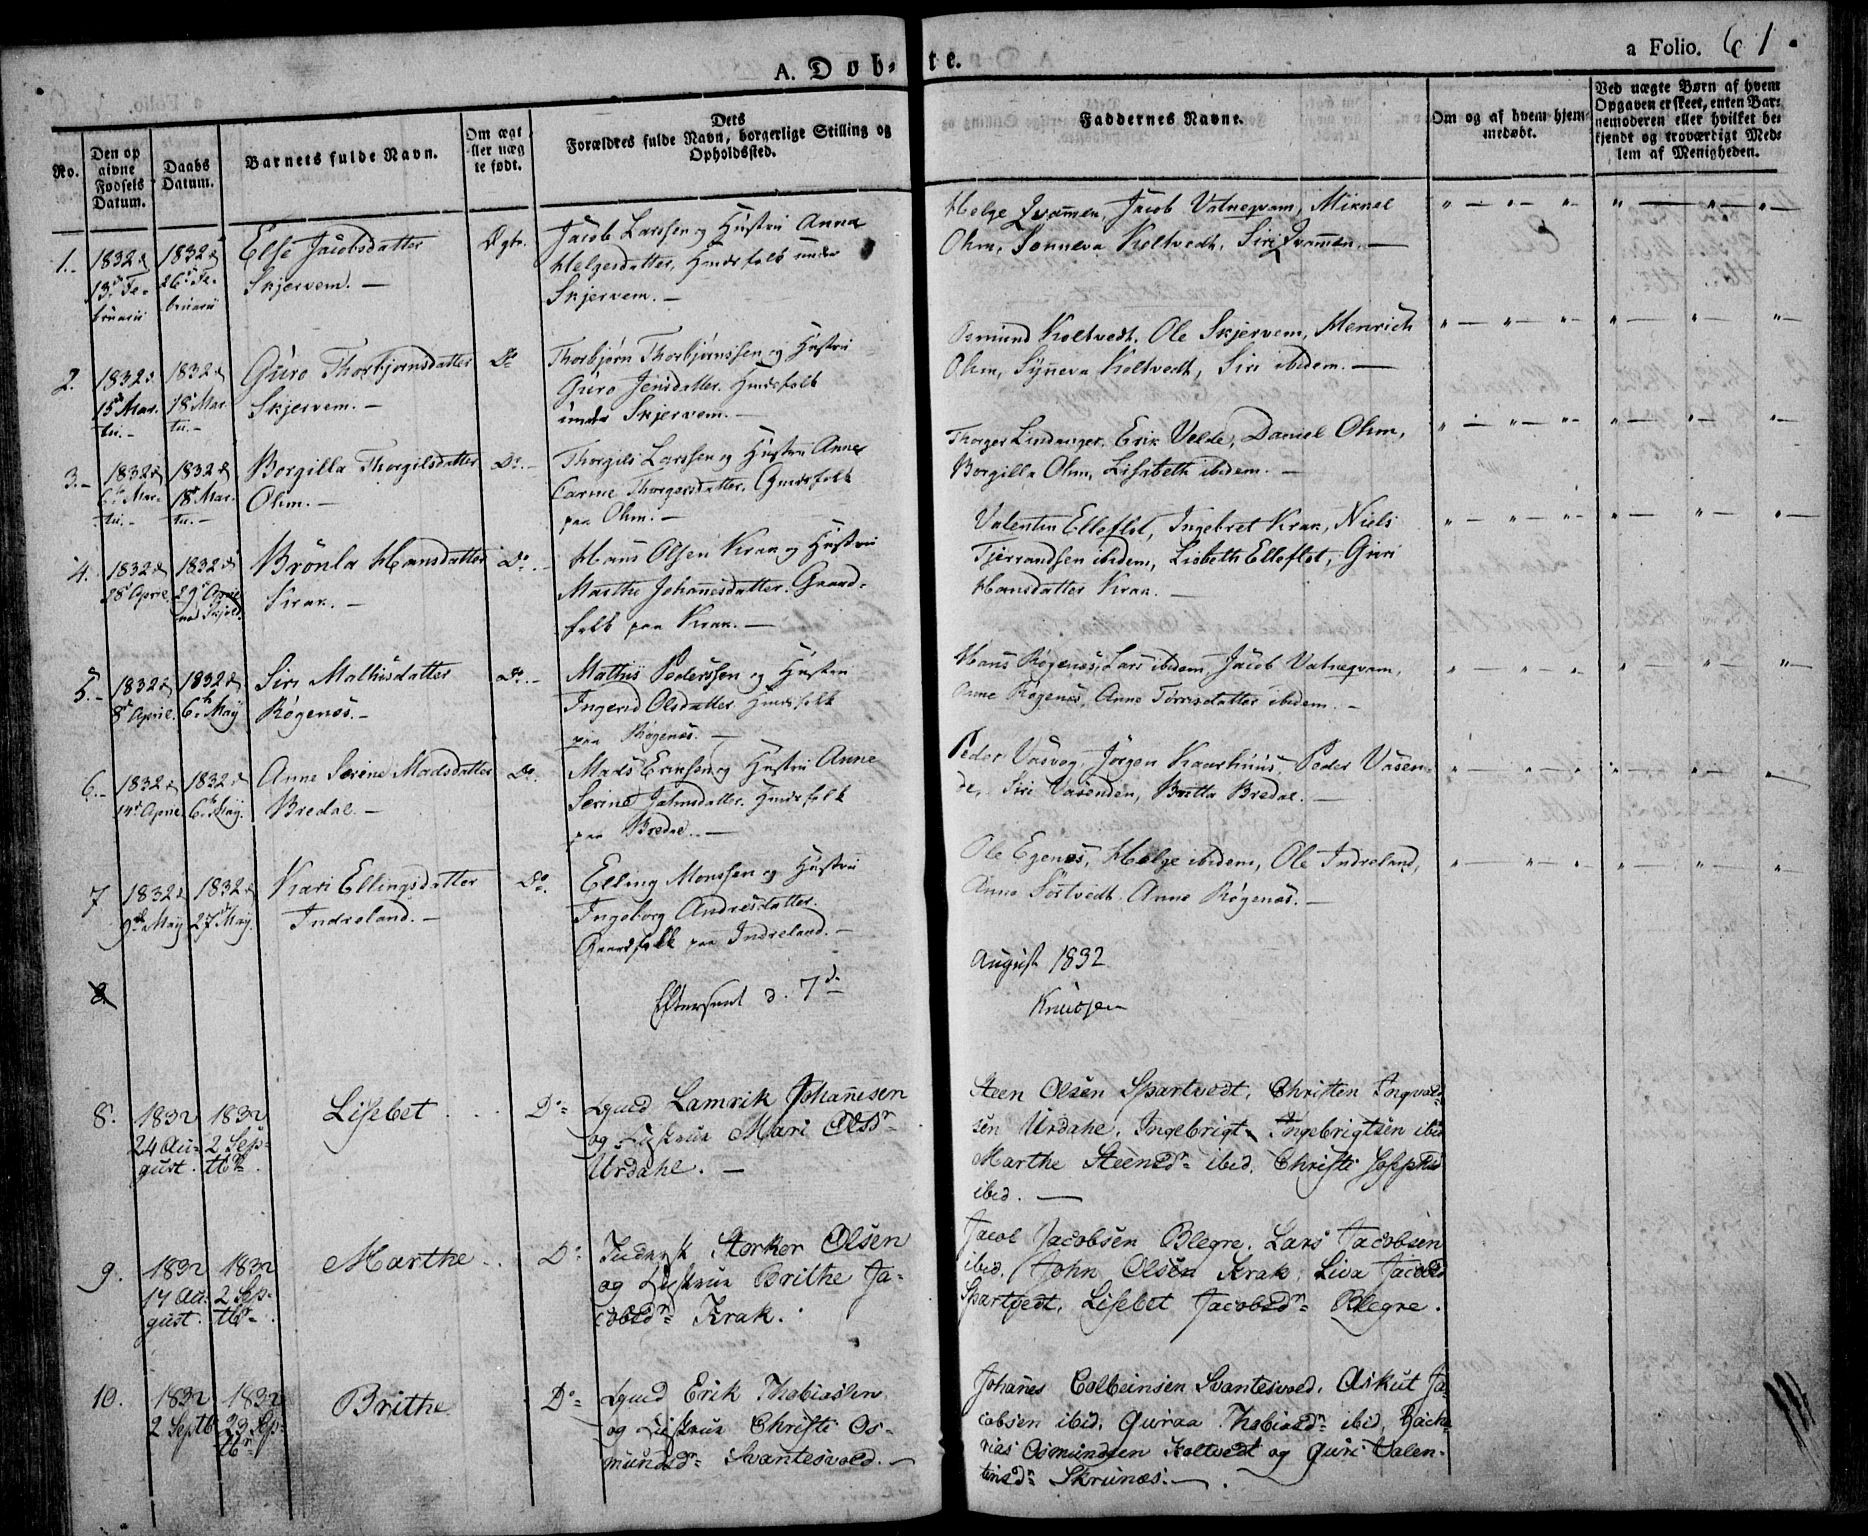 A. Døb-te.
a Folio. 61.
No.
Den op
givne
Fødsels
Datum.
Daabs
Datum.
Barnets fulde Navn.
Om ægt
eller næg
te født.
Dets
Forældres fulde Navn, borgerlige Stilling og
Opholdssted.
Faddernes Navne.
Om og af hvem hjem-
medøbt.
Ved uægte Børn af hvem
Opgaven er skeet, enten Bar-
nemoderen eller hvilket be-
kjendt og troværdigt Med-
lem af Menigheden.
1.-
1832 d
13de Fe-
bruarii
1832 d
26de Fe-
bruarii
Else Jacobsdatter
Skjervem. -
Ægte.
Jacob Larssen og Hustru Anna
Helgesdatter, Huusfolk under
Skjervem. -
Helge Qvammen, Jacob Vatneqvam, Mikael
Ohm, Sønneva Holtvedt, Siri Qvammen. -
2.
1832 d
15de Mar-
tii. -
1832 d
18de Mar-
tii. -
Guro Thorbjørnsdatter
Skjervem. -
Do
Thorbjørn Thorbjørnssen og Hustru
Guro Jensdatter. Huusfolk
under Skjervem. -
Osmund Holtvedt, Ole Skjervem, Henrich
Ohm, Synneva Holtvedt, Siri ibidem. -
3.-
1832 d
6te Mar-
tii. -
1832 d
18de Mar-
tii. -
Borgilla Thorgilsdatter
Ohm. -
Do. -
Thorgils Larssen og Hustru Anne
Carine Thorgersdatter, Huusfolk
paa Ohm. -
Thorger Lindanger, Erik Velde, Daniel Ohm,
Borgilla Ohm, Lisabeth ibidem. -
4.
1832 d
28de April.
1832 d
29de April
ved Skjold.
Brönla Hansdatter
Krak. -
Do. -
Hans Olsen Krak og Hustru
Marthe Johannesdatter. Gaard-
folk paa Krak. -
Valentin Elleflot, Ingebret Krak, Niels
Tjerrandsen ibidem, Lisbeth Elleflot, Guri
Hansdatter Krak. -
5.-
1832 d
8de April.
1832 d
6te May
Siri Mathisdatter
Røgenæs. -
Do. -
Mathis Pederssen og Hustru
Ingerid Olsdatter. Huusfolk
paa Røgenæs. -
Hans Røgenæs, Lars ibidem, Jacob Vatneqvam,
Anne Røgenæs, Anne Torrisdatter ibidem. -
6.-
1832 d
14de April
1832 d
6te May.
Anne Serine Madsdatter
Bredal. -
Do.
Mads Eriksen og Hustru Anne
Serine Jahnsdatter. Huusfolk
paa Bredal. -
Peder Vasvog, Jørgen Kaarhuus, Peder Vasen-
de, Siri Vasenden, Britta Bredal. -
7
1832 d
9de May
1832 d
27de May.
Kari Ellingsdatter
Indreland. -
Do.
Elling Monssen og Hustru
Ingeborg Andresdatter.
Gaardfolk paa Indreland. -
Ole Egenæs, Helge ibidem, Ole Indreland,
Anne Sørtvedt, Anne Røgenæs. -
8.
Efterseet d. 7de
August 1832
Knudsen
8.
1832
24 Au-
gust.
1832
2 Sep-
tbr.
Lisebet
Do
Lamrik Johannesen
og Hustrue Mari Olsdr
Urdahl. -
Steen Olsen Spartvedt, Christen Ingvald-
sen Urdahl. Ingebrigt Ingebrigtsen ibid
Marthe Steensdr ibid. Christi
ibid. -
9.
1832
17 Au-
gust.
1832
2 Sep-
tbr.
Marthe
Do
Inderst Storker Olsen
og Hustrue Brithe Ja-
cobsdr Krak.
Jacob Jacobsen Blegre. Lars Jacobsen
ibid. John Olsen Krak, Liva Jacobsd
Spartvedt, Lisebet Jacobsdr Blegre.
10.
1832
2 Septbr
1832
23 Sep-
tbr
Brithe
Do
Erik Thobiasen
og Hustrue Christi Os-
mundsdr Svantesvold. -
Johannes Colbeinsen Svantesvold. Askut Ja-
cobsen ibid. Guraa Thobiasdr ibid. Zacha-
rias Osmundsen Holtvedt og Guri Valen-
tinsdr Skrunæs. -